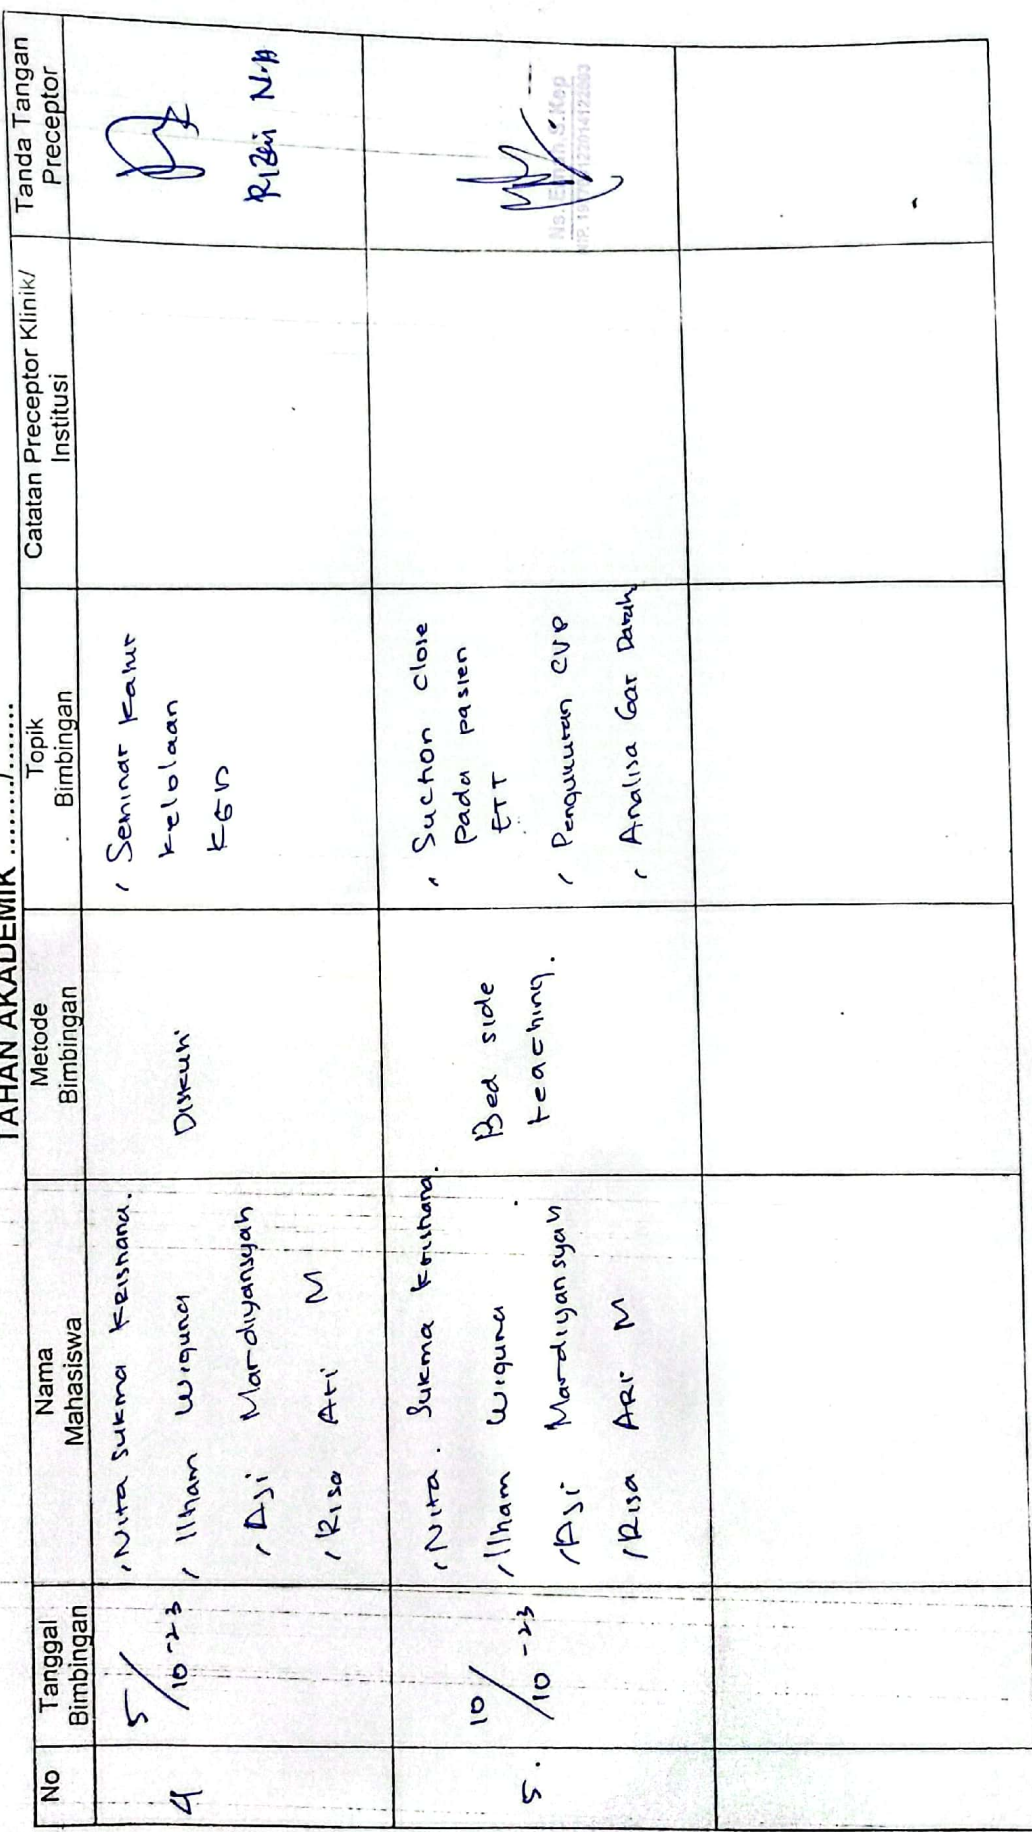 TAHAN AKADEMIK ........./.......
No
Tanggal
Bimbingan
Nama
Mahasiswa
Metode
Bimbingan
Topik
Bimbingan
Catatan Preceptor Klinik/
Institusi
Tanda Tangan
Preceptor
4
5/10-23
, Nita Sukma Krishana.
, Ilham Wiguna
, Aji Mardiyansyah
, Risa Ari M
Diskusi
, Seminar Kasus
Kelolaan
KGD
Rizki N.A
5.
10/10-23
, Nita. Sukma Krishana.
, Ilham Wiguna
, Aji Mardiyansyah
, Risa Ari M
Bed side
teaching.
, Suction close
pada pasien
ETT
, Pengukuran CVP
, Analisa Gas Darah